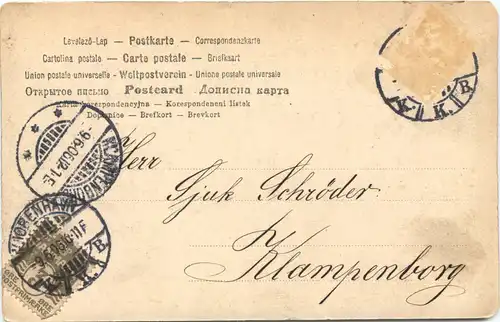 Levelező-Lap — Postkarte — Correspondenzkarte
Cartolina postale — Carte postale — Briefkaart
Union postale universelle - Weltpostverein - Unione postale universale
Открытое письмо Postcard Дописна карта
Karta korespondencyjna — Korespondeni listek
Dopisnice — Brefkort — Brevkort
K. B.
Herr
Sjuk Schröder
Klampenborg
KLAMPENBORG
KJØBENHAVN
K. B.
ØRE